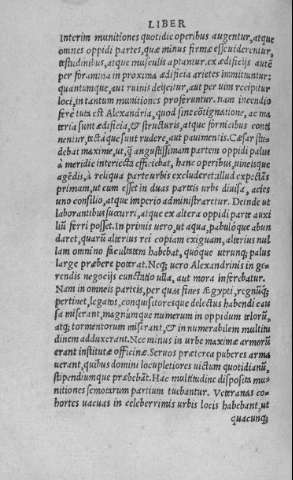 LIBER
Interim munitiones quotidie operibus augentur, atque
omnes oppidi partes, quæ minus firmæ esse uiderentur,
testudinibus, atque musculis aptantur. ex ædificijs autē
per foramina in proxima ædificia arietes immittuntur:
quantumq́ue, aut ruinis deijcitur, aut per uim recipitur
loci, in tantum munitiones proferuntur. nam incendio
ferè tuta est Alexandria, quod sine cōtignatione, ac ma
teria sunt ædificia, & structuris, atque fornicibus conti
nentur, tectáque sunt rudere, aut pauimentis. Cæsar stu
debat maxime, ut, q̃ angustissimam partem oppidi palus
à meridie interiecta efficiebat, hanc operibus, uineisque
agēdis, à reliqua parte urbis excluderet: illud expectās
primum, ut cum esset in duas parteis urbs diuisa, acies
uno consilio, atque imperio administraretur. Deinde ut
laborantibus succurri, atque ex altera oppidi parte auxi
liū ferri posset. In primis uero, ut aqua, pabuloque abun
daret, quarū alterius rei copiam exiguam, alterius nul
lam omnino facultatem habebat, quòque utrunq; palus
large præbere poterat. Neq; uero Alexandrinis in ge-
rendis negocijs cunctatio ulla, aut mora inferebatur.
Nam in omneis parteis, per quas fines Ægypti, regnũq;
pertinet, legatos, conquisitoresque delectus habendi cau
sa miserant, magnumque numerum in oppidum telorū,
atq; tormentorum miserant, & innumerabilem multitu
dinem adduxerant. Nec minus in urbe maximæ armorū
erant institutæ officinæ. Seruos præterea puberes arma
uerant, quibus domini locupletiores uictum quotidianū,
stipendiumque præbebāt. Hac multitudine disposita mu-
nitiones semotarum partium tuebantur. Veteranas co-
hortes uacuas in celeberrimis urbis locis habebant, ut
quacunq;